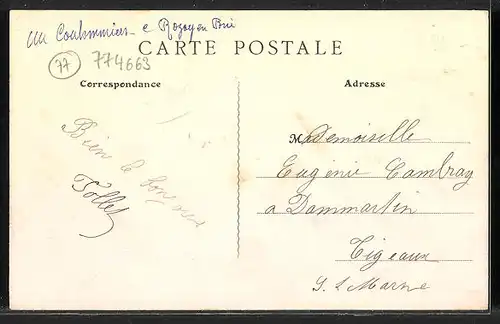 arr Coulommiers c Rozoy en Brie
CARTE POSTALE
77
774663
Correspondance
Adresse
Bien le bonjour
Tollet
Mademoiselle
Eugénie Cambray
a Dammartin
Tigeaux
S. & Marne